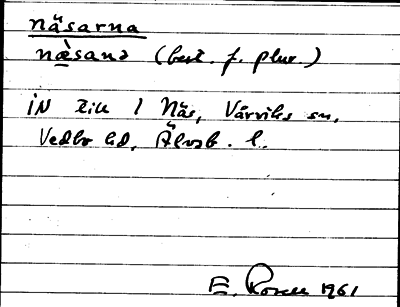 näsarna
næ̀sanə (best. f. plur.)
IN till 1 Näs, Vårviks sn,
Vedbo hd, Älvsb. l.
E. Rosell 1961